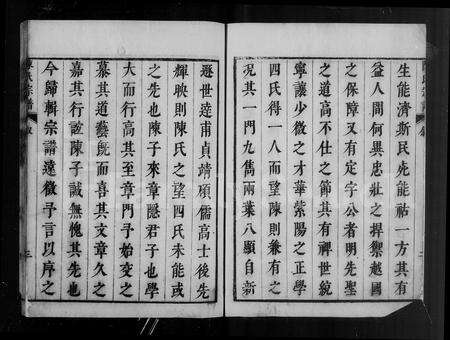 生能濟斯民死能祐一方其有
益人間何異忠壯之捍禦越國
之保障又有定宇公者明先聖
之道高不仕之節其有裨世統
寧讓少微之才華紫陽之正學
四氏得一人而望陳則兼有之
況其一門九雋兩葉八顯自新
遜世逵甫貞靖碩儒高士後先
輝映則陳氏之望四氏未能或
之先也陳子來章隱君子也學
大而行高其至章門予始交之
慕其道藝既而喜其文章久之
嘉其行誼陳子誠無愧其先也
今歸輯宗譜遠徵予言以序之
陳氏宗譜
序
三